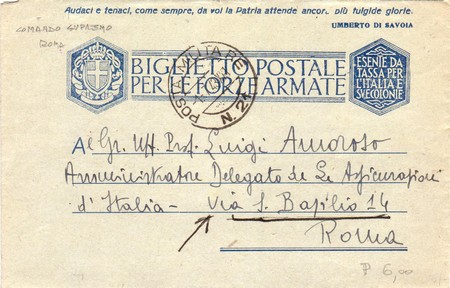 Audaci e tenaci, come sempre, da voi la Patria attende ancor più fulgide glorie.
UMBERTO DI SAVOIA
COMANDO SUPREMO
ROMA
BIGLIETTO POSTALE
PER LE FORZE ARMATE
ESENTE DA
TASSA PER
L'ITALIA E
SVE COLONIE
POSTA MILITARE
N. 21
Al Gr. Uff. Prof. Luigi Amoroso
Amministratore Delegato de Le Assicurazioni
d'Italia - Via S. Basilio 14
Roma
P 6,00